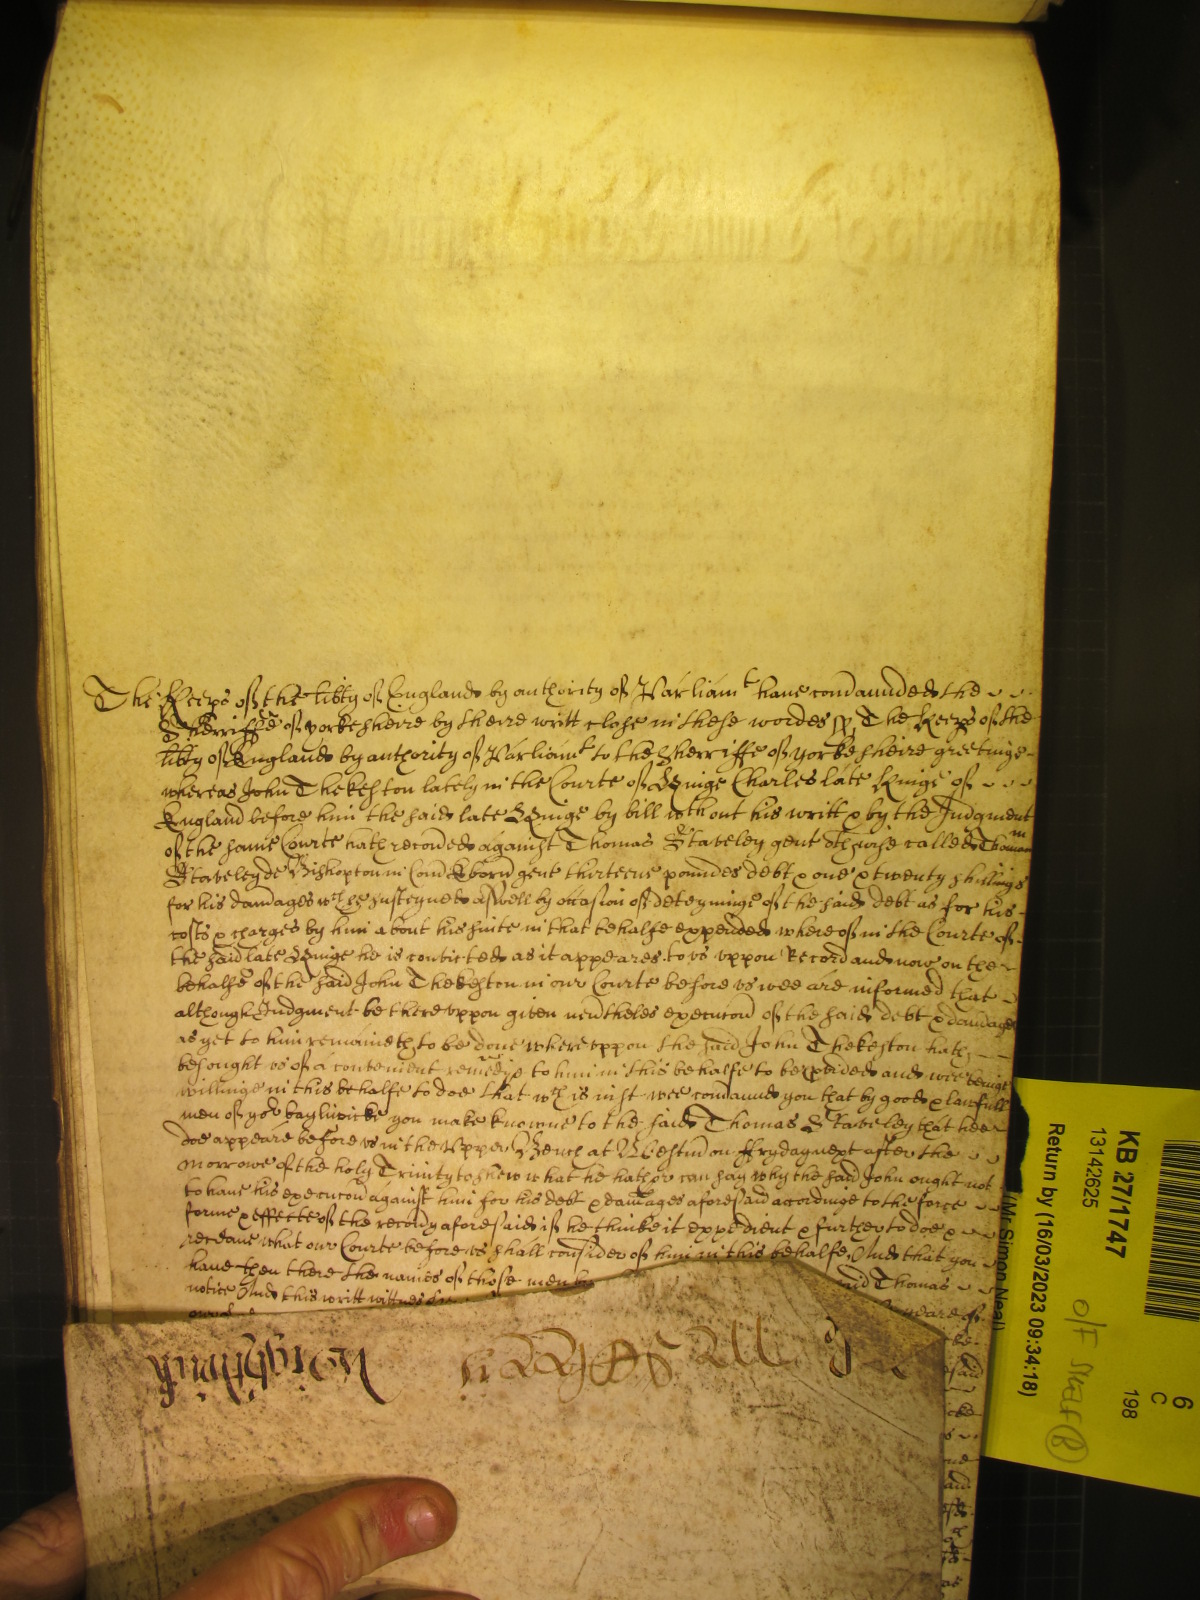 The Keeps of the libty of England by authority of Parliamt have comaunded the
Sherriffe of yorkesheire by theire writt close in these wordes ss The Keeps of the
libty of England by authority of Parliamt to the Sherriffe of yorkesheire greetinge
whereas John Thekeston lately in the Courte of Kinge Charles late Kinge of
England before him the said late Kinge by bill wthout his writt & by the Judgment
of the same Courte hath recoured against Thomas Staveley gent othwise called Thomam
Staveley de Bishopton in Com Ebor gent thirteene poundes debt & one & twenty shillings
for his damages wch he susteyned aswell by occasion of deteyninge of the said debt as for his
costs & charges by him about his suite in that behalfe expended whereof in the Courte of
the said late Kinge he is convicted as it appeares to us uppon Record and now on the
behalfe of the said John Thekeston in our Courte before us wee are informed that
although Judgment be thereuppon given nevtheles execucon of the said debt & damages
as yet to him remaineth to be done whereuppon the said John Thekeston hath
besought us of a convenient remedye to him in this behalfe to be pvided and wee beinge
willinge in this behalfe to doe that wch is just wee comaund you that by good & lawfull
men of yor bayliwicke you make knowne to the said Thomas Staveley that hee
doe appeare before us in the Upper Bench at Westm on Fryday next after the
morrowe of the holy Trinity to shew what he hath or can say why the said John ought not
to have his execucon against him for his debt & damages aforesaid accordinge to the force
forme & effecte of the recovy aforesaid if he thinke it expedient & further to doe &
receave what our Courte before us shall consider of him in this behalfe. And that you
have then there the names of those men
aid Thomas
notice And this writt wittnes
yeare of
said
KB 27/1747
13142625
Return by (16/03/2023 09:34:18)
(Mr Simon Neal)
6
C
198
O/F